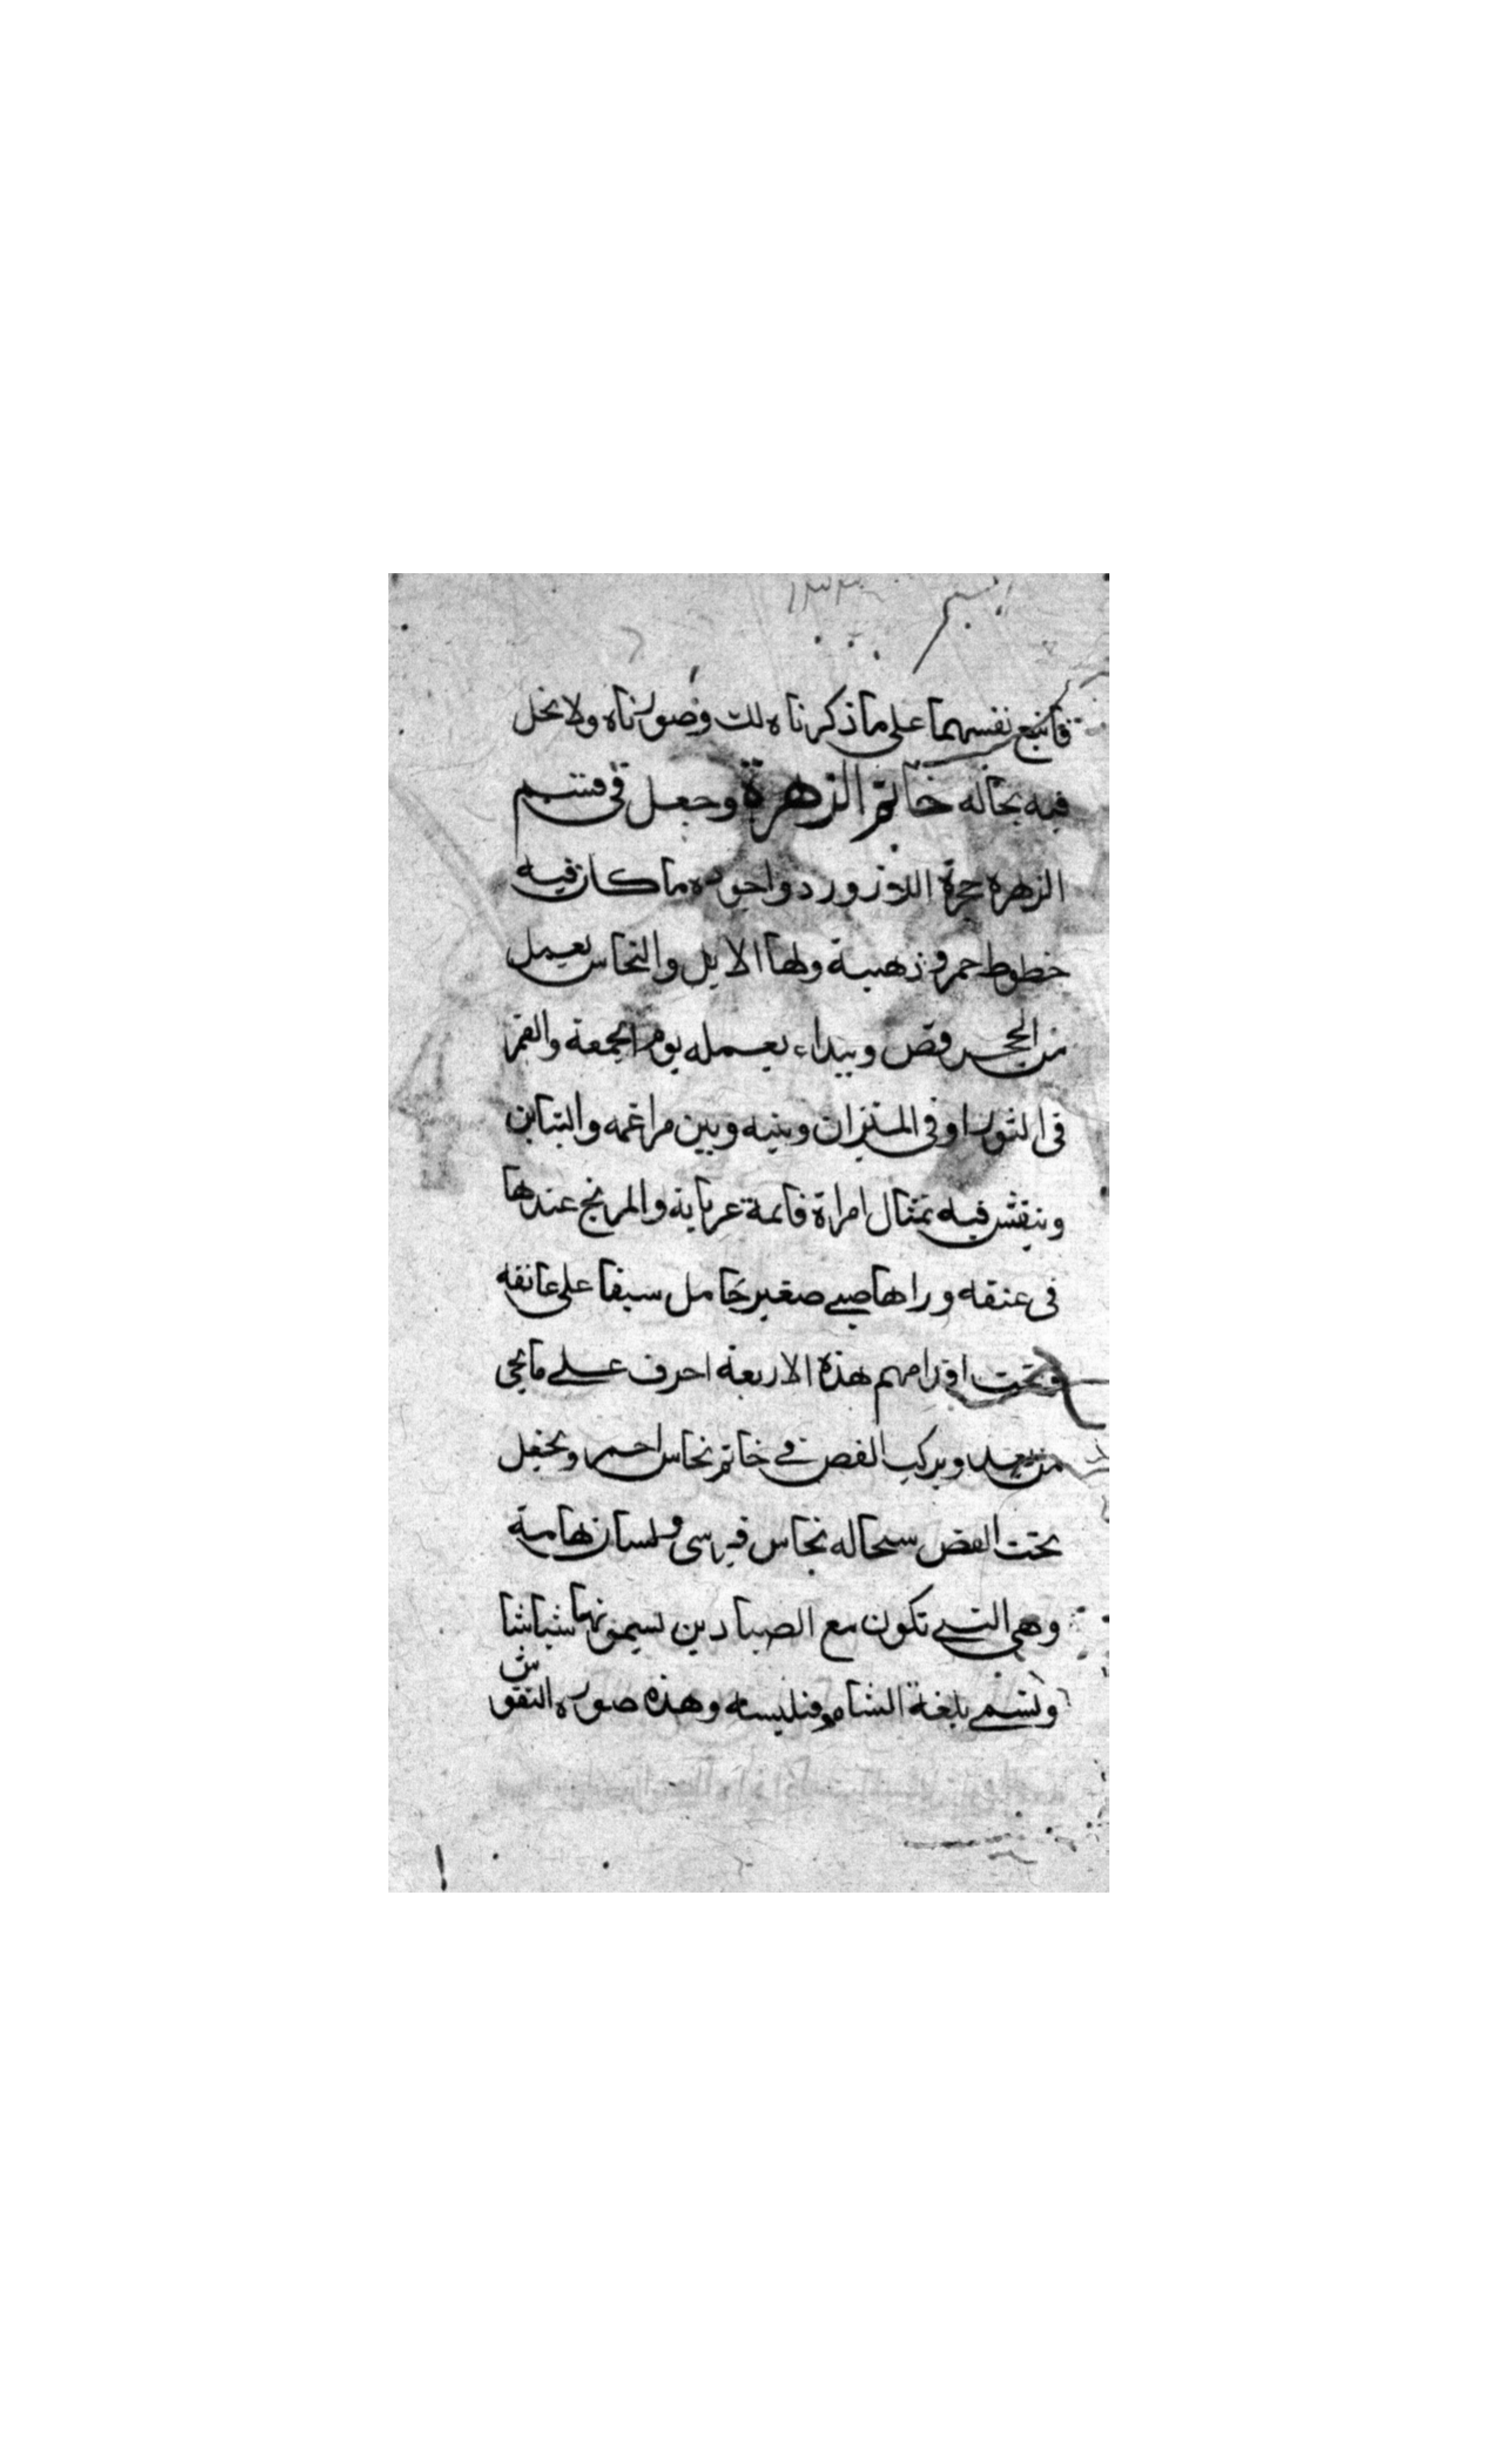 فاتبع نفسهما على ما ذكرناه لك وصورناه ولا تخل
فيه بحاله خاتم الزهرة وجعل في قسم
الزهره حجرة اللازورد واجوده ما كان فيه
خطوط حمر وذهبية ولها الايل والنحاس يعمل
من الحجر فص ويبداء بعمله يوم الجمعة والقمر
في الثور او في الميزان وبنيه وبين مراغمه والتباين
وينقش فيه تمثال امراة قائمة عريانه والمريخ عندها
في عنقه وراها صبي صغير حامل سيفا على عاتقه
وتحت اقدامهم هذه الاربعة احرف على ما يجي
من بعد ويركب الفص في خاتم نحاس احمر ويجعل
تحت الفص سحاله نحاس قبرسى ولسان نهامية
وهي التي تكون مع الصيادين يسمونها شباشا
وتسمى بلغة الشام وهذه صوره النقش